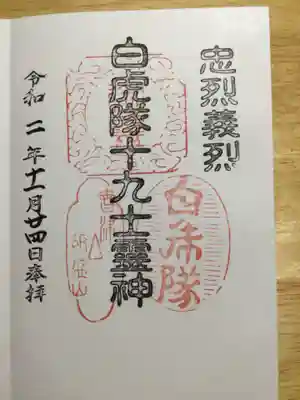 忠烈義烈
白虎隊十九士靈神
白虎隊
令和二年十一月廿四日奉拝